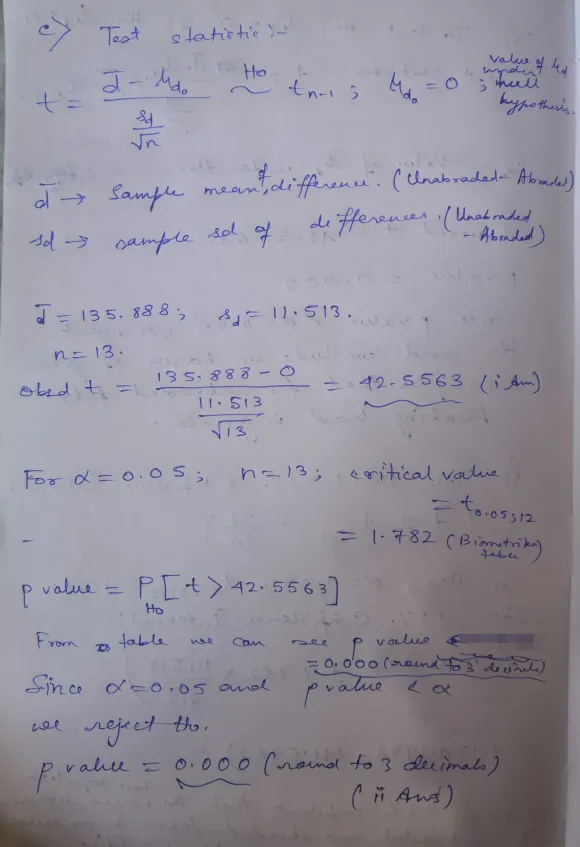 c) Test statistic :-
t = d̄ - μd₀ / (sd/√n) ~ᴴ⁰ tn-1 ; μd₀ = 0 ; value of μd under null hypothesis.
d̄ → Sample mean of difference. (Unabraded - Abraded)
sd → sample sd of differences. (Unabraded - Abraded)
d̄ = 135.888 ; sd = 11.513.
n = 13.
obsd t = 135.888 - 0 / (11.513/√13) = 42.5563 (i Ans)
For α = 0.05 ; n = 13 ; critical value
= t0.05;12
= 1.782 (Biometrika table)
p value = PH₀ [t > 42.5563]
From table we can see p value
= 0.000 (round to 3 decimals)
Since α = 0.05 and p value < α
we reject Ho.
p value = 0.000 (round to 3 decimals)
(ii Ans)